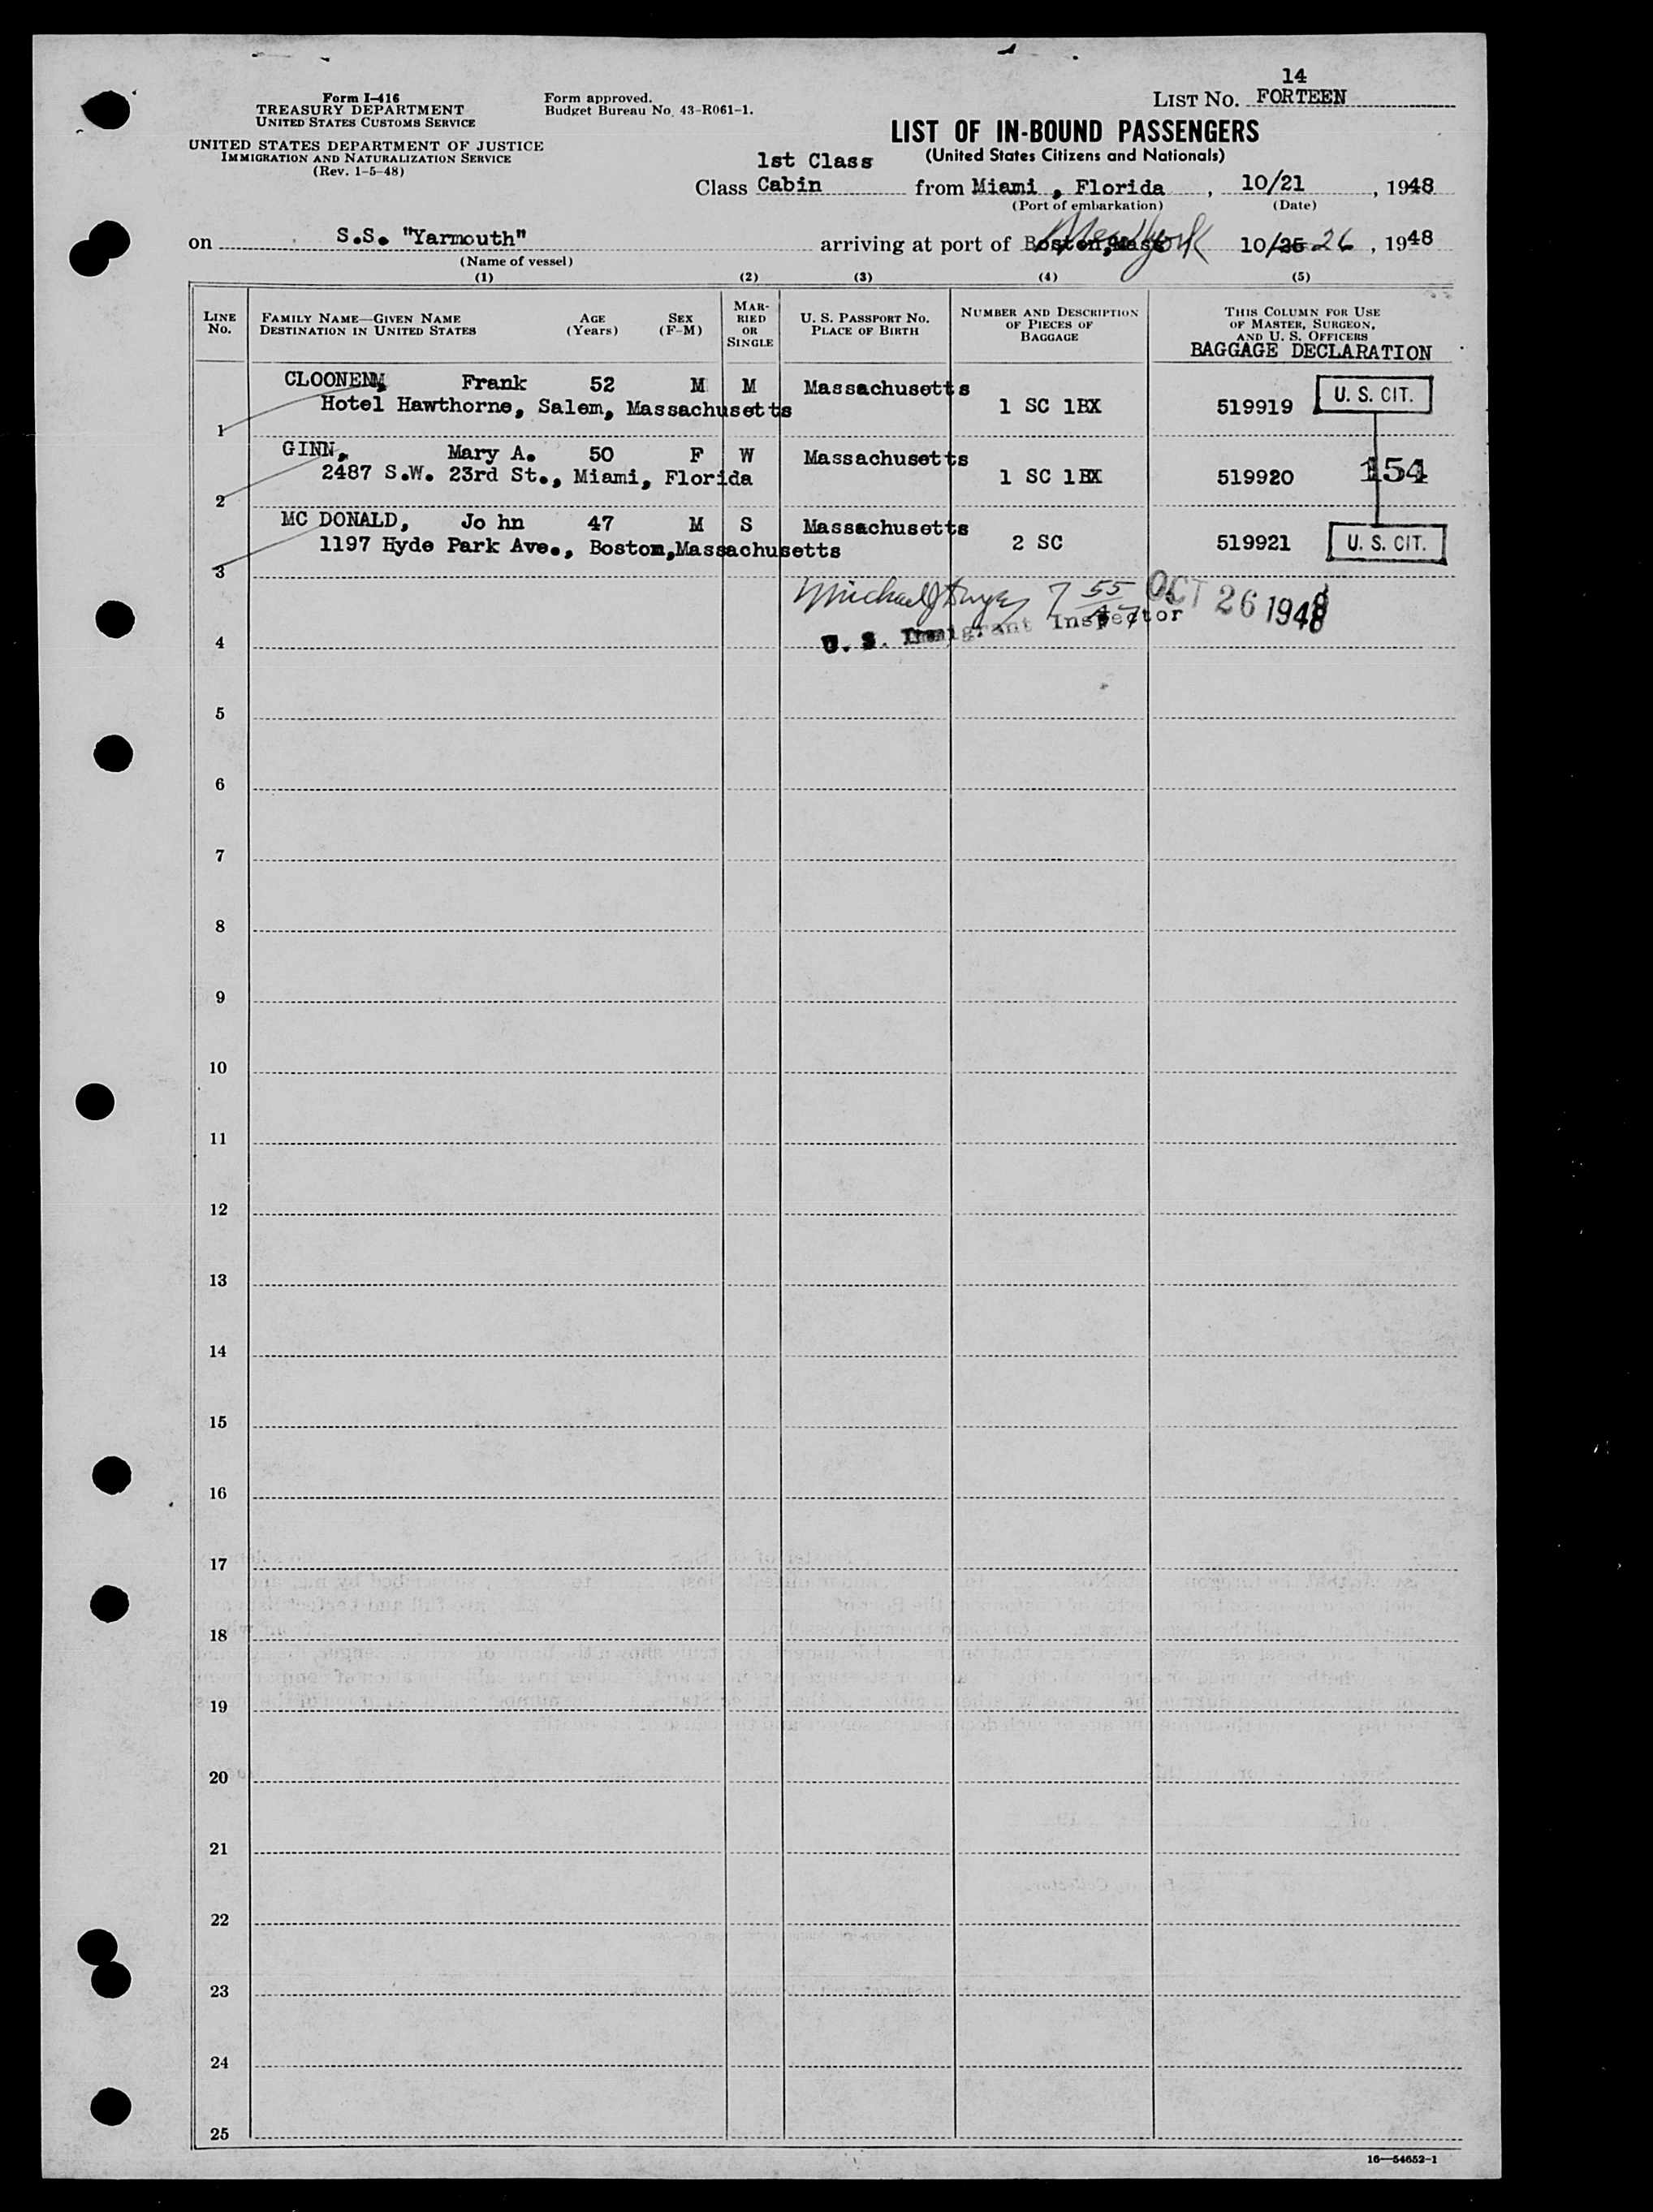 14
LIST NO. FORTEEN
Form I-416
TREASURY DEPARTMENT
UNITED STATES CUSTOMS SERVICE
UNITED STATES DEPARTMENT OF JUSTICE
IMMIGRATION AND NATURALIZATION SERVICE
(Rev. 1-5-48)
Form approved.
Budget Bureau No. 43-R061-1.
LIST OF IN-BOUND PASSENGERS
(United States Citizens and Nationals)
1st Class
Class Cabin from Miami , Florida , 10/21 , 1948
(Port of embarkation) (Date)
on S.S. "Yarmouth" arriving at port of Boston, Mass New York 10/25 26 , 1948
(Name of vessel)
(1) (2) (3) (4) (5)
LINE No. FAMILY NAME—GIVEN NAME DESTINATION IN UNITED STATES AGE (Years) SEX (F-M) MARRIED OR SINGLE U. S. PASSPORT NO. PLACE OF BIRTH NUMBER AND DESCRIPTION OF PIECES OF BAGGAGE THIS COLUMN FOR USE OF MASTER, SURGEON, AND U. S. OFFICERS
BAGGAGE DECLARATION
CLOONEN, Frank 52 M M Massachusetts
1 Hotel Hawthorne, Salem, Massachusetts 1 SC 1BX 519919 U. S. CIT.
GINN, Mary A. 50 F W Massachusetts
2 2487 S.W. 23rd St., Miami, Florida 1 SC 1BX 519920 154
MC DONALD, Jo hn 47 M S Massachusetts
3 1197 Hyde Park Ave., Boston, Massachusetts 2 SC 519921 U. S. CIT.
Michael J 7 55 OCT 26 1948
4 U. S. Immigrant Inspector
5
6
7
8
9
10
11
12
13
14
15
16
17
18
19
20
21
22
23
24
25
16—54652-1